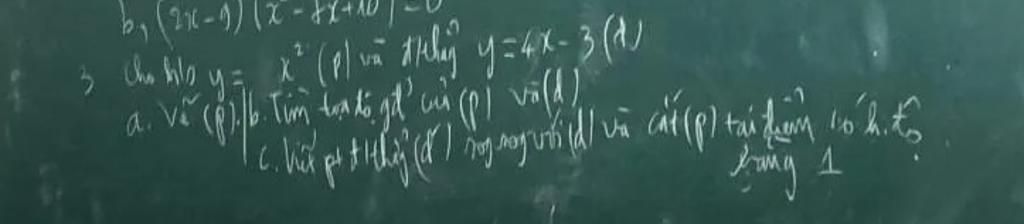 b, (2x-9)(x² - 7x+10) = 0
3 Cho h/s y = x² (P) và đ/thẳng y = 4x - 3 (d)
a. Vẽ (P). b. Tìm tọa độ gđ của (P) và (d)
c. Viết pt đ/thẳng (d') song song với (d) và cắt (P) tại điểm có h.độ
bằng 1